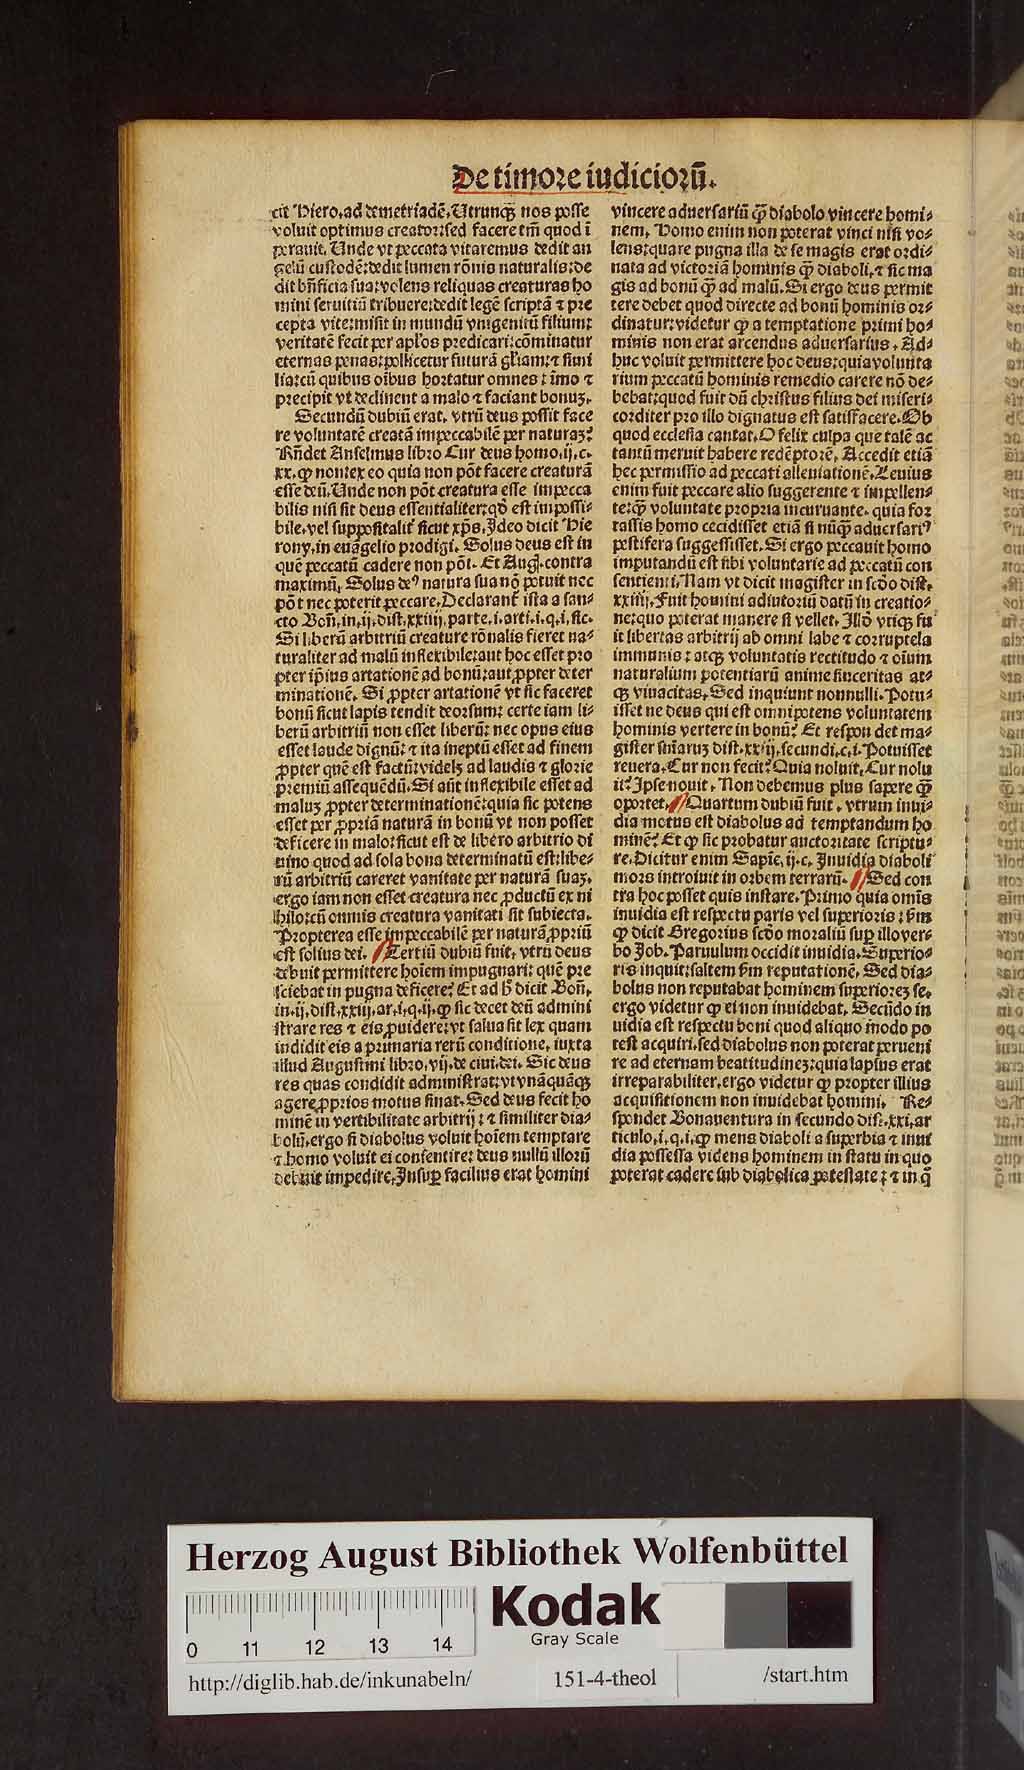 De timore iudicioꝝ̃.
cit Hiero. ad demetriadē. Utrunqꝫ nos posse
voluit optimus creator: sed facere tm̄ quod ī
perauit. Unde vt peccata vitaremus dedit an
gelū custodē: dedit lumen rōnis naturalis: de
dit bn̄ficia sua: volens reliquas creaturas ho
mini seruitiū tribuere: dedit legē scriptā ⁊ pre
cepta vite: misit in mundū vnigenitū filium:
veritatē fecit per apl̓os predicari: cōminatur
eternas penas: pollicetur futurā gl̓iam: ⁊ simi
lia: cū quibus oībus hortatur omnes: īmo ⁊
precipit vt declinent a malo ⁊ faciant bonuꝫ.
Secundū dubiū erat. vtrū deus possit face
re voluntatē creatā impeccabilē per naturaꝫ?
Rn̄det Anselmus libro Cur deus homo. ij. c.
xx. ꝙ non: ex eo quia non pōt facere creaturā
esse deū. Unde non pōt creatura esse impecca
bilis nisi sit deus essentialiter: qd̓ est impossi⸗
bile. vel suppositalit̓ sicut xp̄s. Ideo dicit Hie
rony. in euāgelio prodigi. Solus deus est in
quē peccatū cadere non pōt. Et Aug. contra
maximū. Solus deꝰ natura sua nō potuit nec
pōt nec poterit peccare. Declarant̓ ista a san⸗
cto Bon̄. in. ij. dist. xxiiij. parte. i. arti. i. q. i. sic.
Si liberū arbitriū creature rōnalis fieret na⸗
turaliter ad malū inflexibile: aut hoc esset pro
pter ip̄ius artationē ad bonū: aut ꝓpter deter
minationē. Si ꝓpter artationē vt sic faceret
bonū sicut lapis tendit deorsum: certe iam li⸗
berū arbitriū non esset liberū: nec opus eius
esset laude dignū: ⁊ ita ineptū esset ad finem
ꝓpter quē est factū: videlꝫ ad laudis ⁊ glorie
premiū assequēdū. Si aūt inflexibile esset ad
maluꝫ ꝓpter determinationē: quia sic potens
esset per ꝓpriā naturā in bonū vt non posset
deficere in malo: sicut est de libero arbitrio di
uino quod ad sola bona determinatū est: libe⸗
rū arbitriū careret vanitate per naturā suaꝫ.
ergo iam non esset creatura nec ꝓductū ex ni
hilo: cū omnis creatura vanitati sit subiecta.
Propterea esse impeccabilē per naturā ꝓpriū
est solius dei. Tertiū dubiū fuit. vtrū deus
debuit permittere hoīem impugnari: quē pre
sciebat in pugna deficere? Et ad h̓ dicit Bon̄.
in. ij. dist. xxiij. ar. i. q. ij. ꝙ sic decet deū admini
strare res ⁊ eis ꝓuidere: vt salua sit lex quam
indidit eis a primaria rerū conditione. iuxta
illud Augustini libro. vij. de ciui. dei. Sic deus
res quas condidit administrat: vt vnāquāqꝫ
agere ꝓprios motus sinat. Sed deus fecit ho
minē in vertibilitate arbitrij: ⁊ similiter dia⸗
bolū. ergo si diabolus voluit hoīem temptare
⁊ homo voluit ei consentire: deus nullū illorū
debuit impedire. Insuꝑ facilius erat homini
vincere aduersariū ꝙ̄ diabolo vincere homi⸗
nem. Homo enim non poterat vinci nisi vo⸗
lens: quare pugna illa de se magis erat ordi⸗
nata ad victoriā hominis ꝙ̄ diaboli. ⁊ sic ma
gis ad bonū ꝙ̄ ad malū. Si ergo deus permit
tere debet quod directe ad bonū hominis or⸗
dinatur: videtur ꝙ a temptatione primi ho⸗
minis non erat arcendus aduersarius. Ad⸗
huc voluit permittere hoc deus: quia volunta
rium peccatū hominis remedio carere nō de⸗
bebat: quod fuit dū christus filius dei miseri⸗
corditer pro illo dignatus est satisfacere. Ob
quod ecclesia cantat. O felix culpa que talē ac
tantū meruit habere redēptorē. Accedit etiā
hec permissio ad peccati alleuiationē. Leuius
enim fuit peccare alio suggerente ⁊ impellen⸗
te: ꝙ̄ voluntate propria incuruante. quia for
tassis homo cecidisset etiā si nūꝙ̄ aduersariꝰ
pestifera suggessisset. Si ergo peccauit homo
imputandū est sibi voluntarie ad peccatū con
sentienti. Nam vt dicit magister in scd̓o dist.
xxiiij. Fuit homini adiutoriū datū in creatio⸗
ne: quo poterat manere si vellet. Illd̓ vtiqꝫ fu
it libertas arbitrij ab omni labe ⁊ corruptela
immunis: atqꝫ voluntatis rectitudo ⁊ oīum
naturalium potentiarū anime sinceritas at⸗
qꝫ viuacitas. Sed inquiunt nonnulli. Potu⸗
isset ne deus qui est omnipotens voluntatem
hominis vertere in bonū? Et respon det ma⸗
gister sn̄iaruꝫ dist. xxiij. secundi. c. i. Potuisset
reuera. Cur non fecit? Quia noluit. Cur nolu
it? Ipse nouit. Non debemus plus sapere ꝙ̄
oportet. Quartum dubiū fuit. vtrum inui⸗
dia motus est diabolus ad temptandum ho
minē? Et ꝙ sic probatur auctoritate scriptu⸗
re. Dicitur enim Sapiē. ij. c. Inuidia diaboli
mors introiuit in orbem terrarū. Sed con
tra hoc posset quis instare. Primo quia omīs
inuidia est respectu paris vel superioris: fm̄
ꝙ dicit Gregorius scd̓o moraliū suꝑ illo ver⸗
bo Job. Paruulum occidit inuidia. Superio⸗
ris inquit: saltem fm̄ reputationē. Sed dia⸗
bolus non reputabat hominem superioreꝫ se.
ergo videtur ꝙ ei non inuidebat. Secūdo in
uidia est respectu boni quod aliquo modo po
test acquiri. sed diabolus non poterat perueni
re ad eternam beatitudineꝫ: quia lapsus erat
irreparabiliter. ergo videtur ꝙ propter illius
acquisitionem non inuidebat homini. Re⸗
spondet Bonauentura in secundo dist. xxi. ar
ticulo. i. q. i. ꝙ mens diaboli a superbia ⁊ inui
dia possessa videns hominem in statu in quo
poterat cadere sub diabolica potestate: ⁊ in q̄
Herzog August Bibliothek Wolfenbüttel
Kodak
Gray Scale
0 11 12 13 14
http://diglib.hab.de/inkunabeln/ 151-4-theol /start.htm